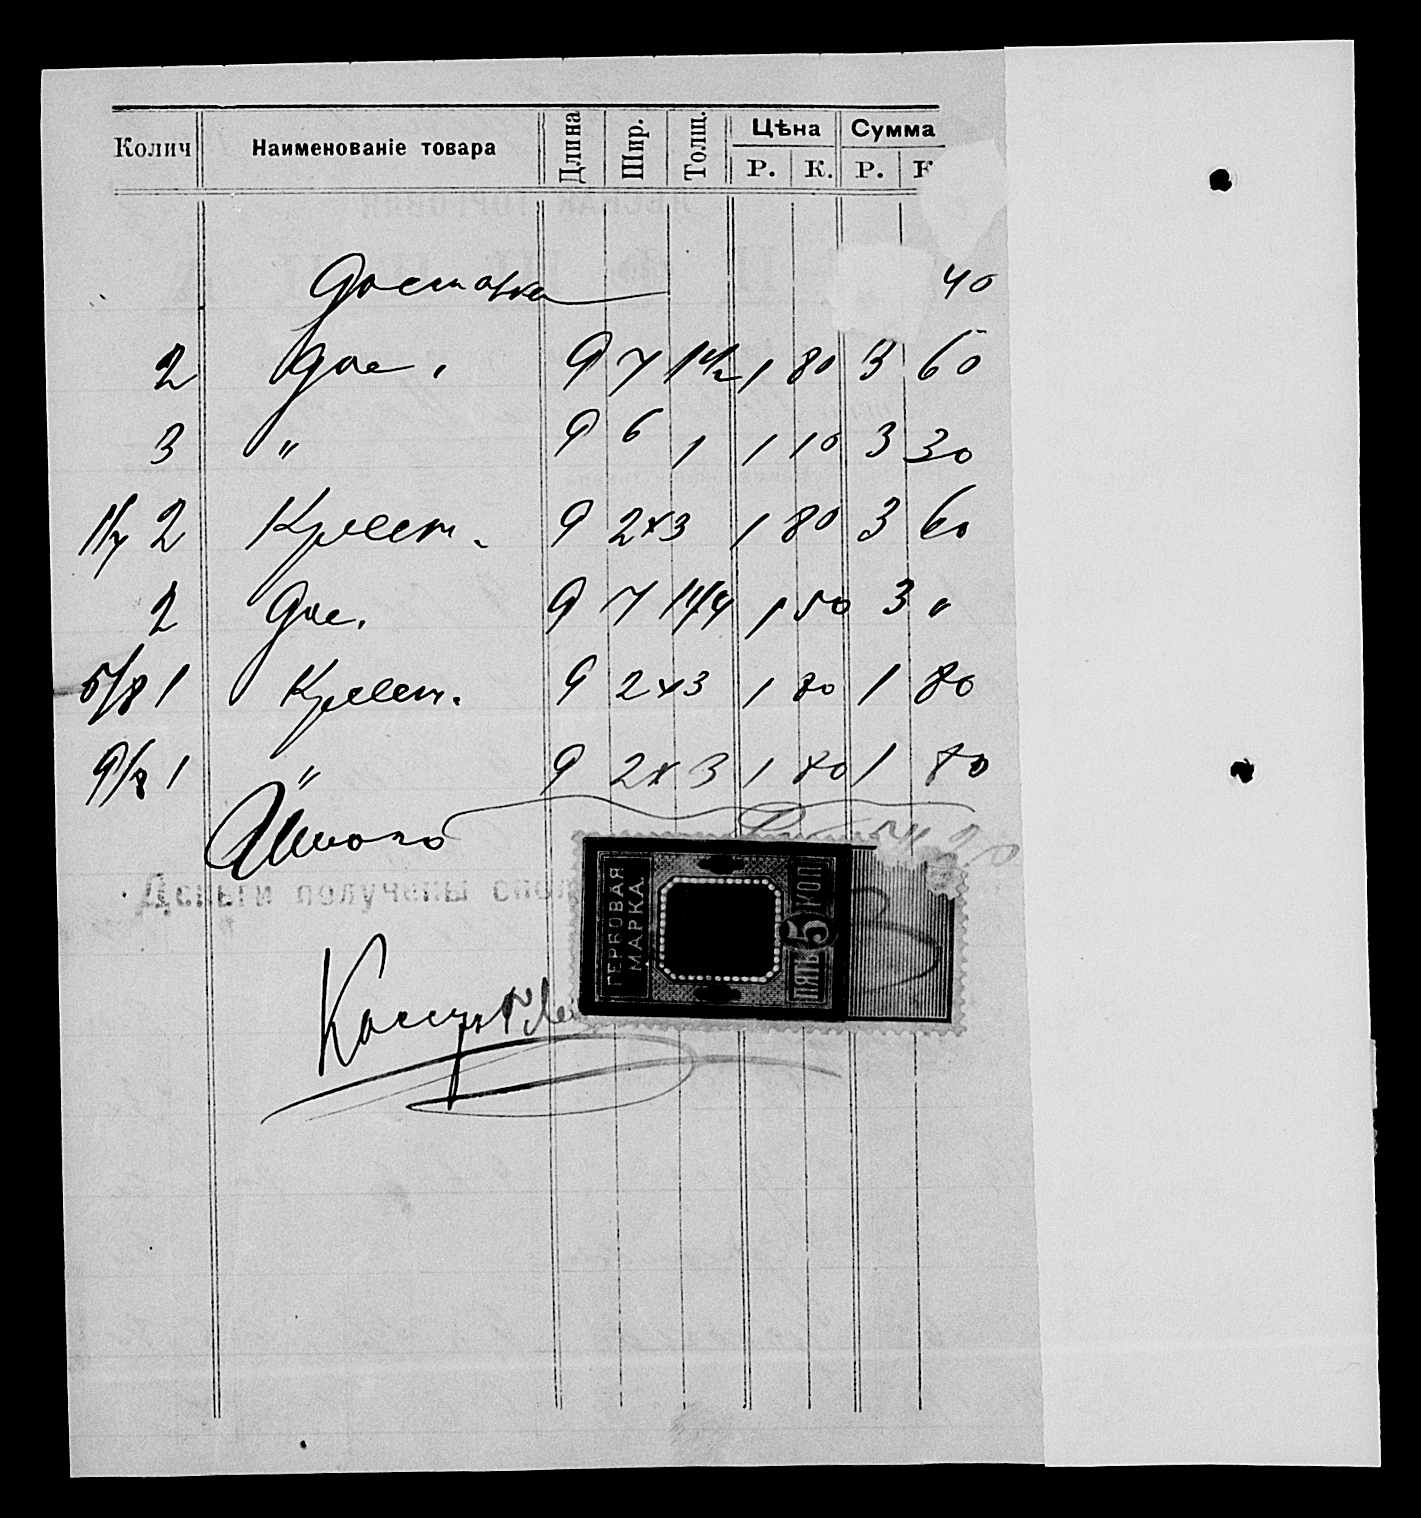 Колич Наименованіе товара Длина Шир. Толщ. Цѣна Сумма
Р. К. Р.
Доставка 40
2 Дос. 9 7 1 1/2 1 80 3 60
3 " 9 6 1 1 10 3 30
2 9 2х3 1 80 3 60
2 Дос. 9 7 1 1/4 1 50 3 "
5/8 1 9 2х3 1 80 1 80
9/8 1 " 9 2х3 1 80 1 80
Итого
Деньги получены спол
ГЕРБОВАЯ
МАРКА.
ПЯТЬ 5 КОП